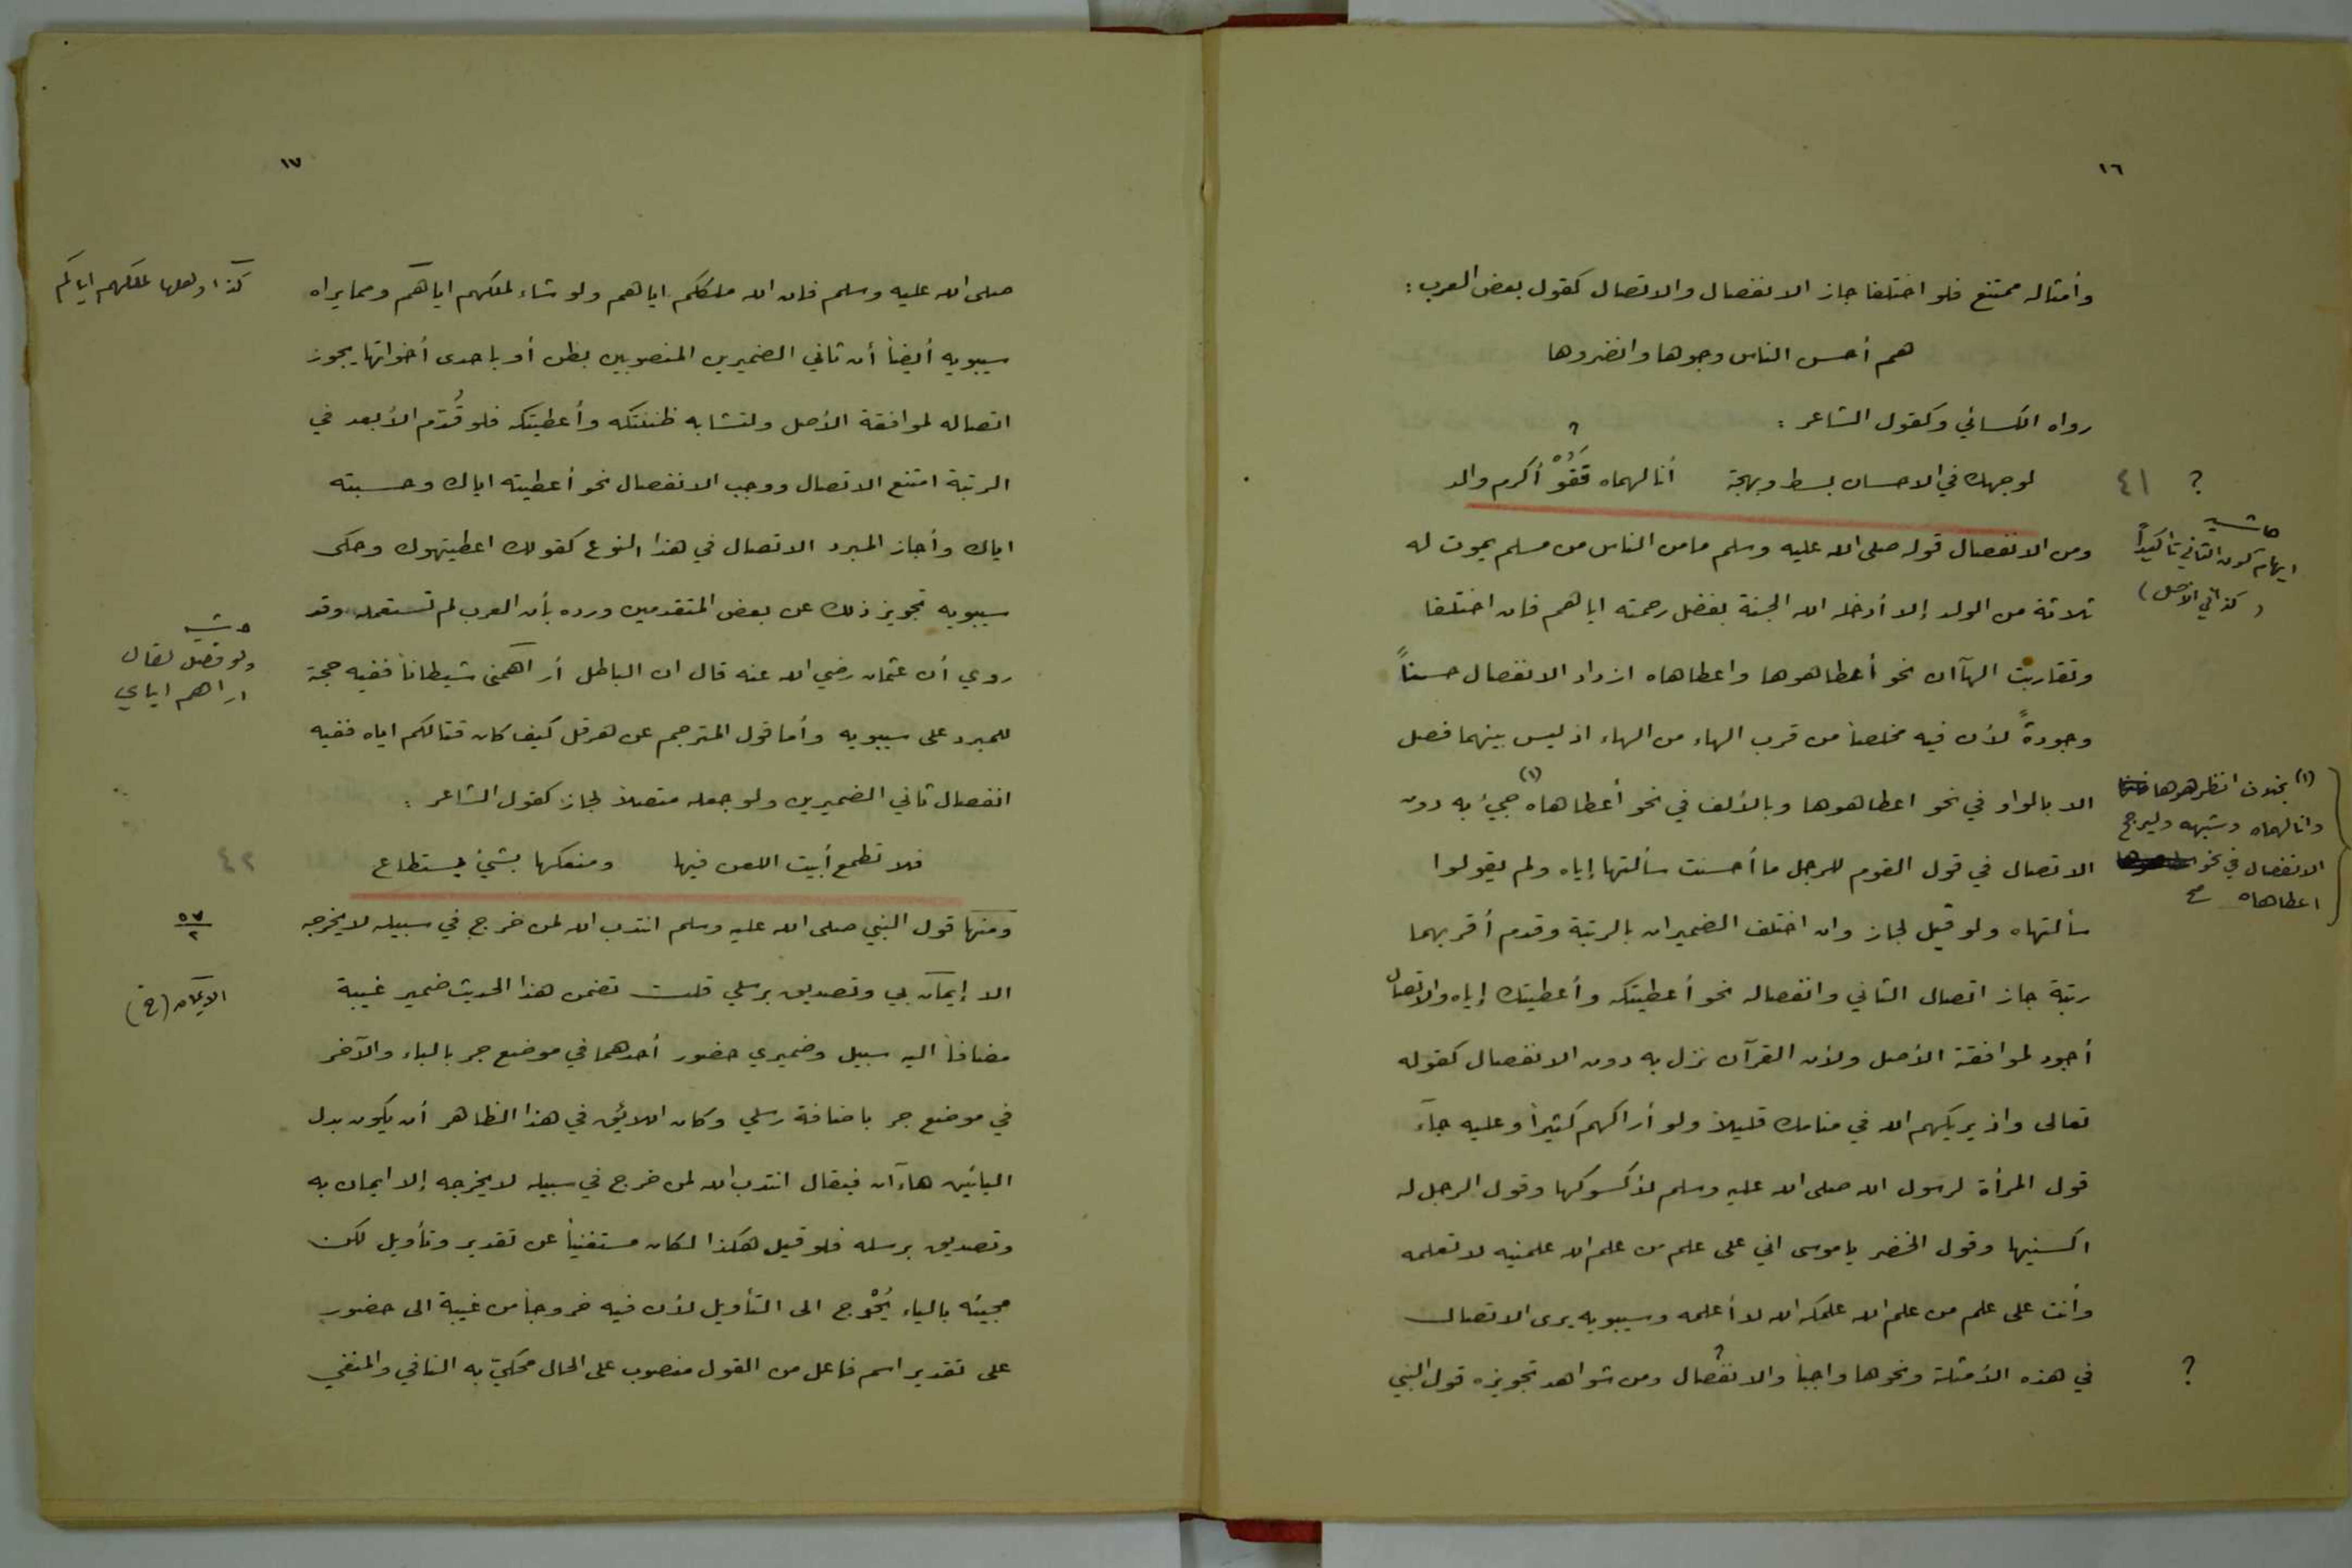 ١٦
وأمثاله ممتنع فلو اختلفا جاز الانفصال والاتصال كقول بعض العرب :
هم أحسن الناس وجوها وانضروها
رواه الكسائي وكقول الشاعر :
؟
لوجهك في الاحسان بسط وبهجة أنالهماه قفوُ أكرم والد
؟ ٤١
ومن الانفصال قوله صلى الله عليه وسلم مامن الناس من مسلم يموت له
ثلاثة من الولد إلا أدخله الله الجنة بفضل رحمته اياهم فان اختلفا
حاشيه
ايهام كون الثاني تأكيداً
(كذا في الأصل)
وتقاربت الهاآن نحو أعطاهوها واعطاهاه ازداد الانفصال حسناً
وجودةً لأن فيه تخلصا من قرب الهاء من الهاء اذ ليس بينهما فصل
الا بالواو في نحو اعطاهوها وبالألف في نحو أعطاهاه (١) جيئ به دون
الاتصال في قول القوم للرجل ما أحسنت سألتها إياه ولم يقولوا
(١) بخلاف انظرهوها
وانالهماه وشبهه وليرجح
الانفصال في نحو
اعطاهاه صح
سألتهاه ولو قيل لجاز وان اختلف الضميران بالرتبة وقدم أقربهما
رتبة جاز اتصال الثاني وانفصاله نحو أعطيتكه وأعطيتك إياه والاتصال
أجود لموافقة الأصل ولأن القرآن نزل به دون الانفصال كقوله
تعالى واذ يريكهم الله في منامك قليلاً ولو أراكهم كثيراً وعليه جآء
قول المرأة لرسول الله صلى الله عليه وسلم لأكسوكها وقول الرجل له
اكسنيها وقول الخضر ياموسى اني على علم من علم الله علمنيه لا تعلمه
وأنت على علم من علم الله علمكه الله لا أعلمه وسيبويه يرى الاتصال
في هذه الأمثلة ونحوها واجباً والانفصال ومن شواهد تجويزه قول النبي
؟ ؟
١٧
صلى الله عليه وسلم فان الله ملككم اياهم ولو شاء لملكهم اياهم ومما يراه
كذا ولعلها لملكهم اياكم
سيبويه أيضاً أن ثاني الضميرين المنصوبين بظن أو باحدى أخواتها يجوز
اتصاله لموافقة الأصل ولتشابه ظننتكه وأعطيتكه فلو قُدّم الأبعد في
الرتبة امتنع الاتصال ووجب الانفصال نحو أعطيته اياك وحسبته
اياك وأجاز المبرد الاتصال في هذا النوع كقولك اعطيتهوك وحكى
سيبويه تجويز ذلك عن بعض المتقدمين ورده بأن العرب لم تستعمله وقد
روي أن عثمان رضي الله عنه قال ان الباطل أراهمني شيطاناً ففيه حجة
حاشيه
ولو فصل لقال
اراهم اياي
للمبرد على سيبويه وأما قول المترجم عن هرقل كيف كان قتالكم اياه ففيه
انفصال ثاني الضميرين ولو جعله متصلاً لجاز كقول الشاعر :
فلا تطمع أبيت اللعن فيها ومنعكها بشيئ يستطاع
٤٢
ومنها قول النبي صلى الله عليه وسلم انتدب الله لمن خرج في سبيله لا يخرجه
٥٧
٢
الا إيمان بي وتصديق برسلي قلت تضمن هذا الحديث ضمير غيبة
الايمان (خ)
مضافاً اليه سبيل وضميري حضور أحدهما في موضع جر بالباء والآخر
في موضع جر باضافة رسلي وكان اللائق في هذا الظاهر أن يكون بدل
اليائين هاءآن فيقال انتدب الله لمن خرج في سبيله لا يخرجه إلا ايمان به
وتصديق برسله فلو قيل هكذا لكان مستغنياً عن تقدير وتأويل لكن
مجيئه بالياء يُحْوج الى التأويل لأن فيه خروجاً من غيبة الى حضور
على تقدير اسم فاعل من القول منصوب على الحال محكيّ به النافي والمنفي